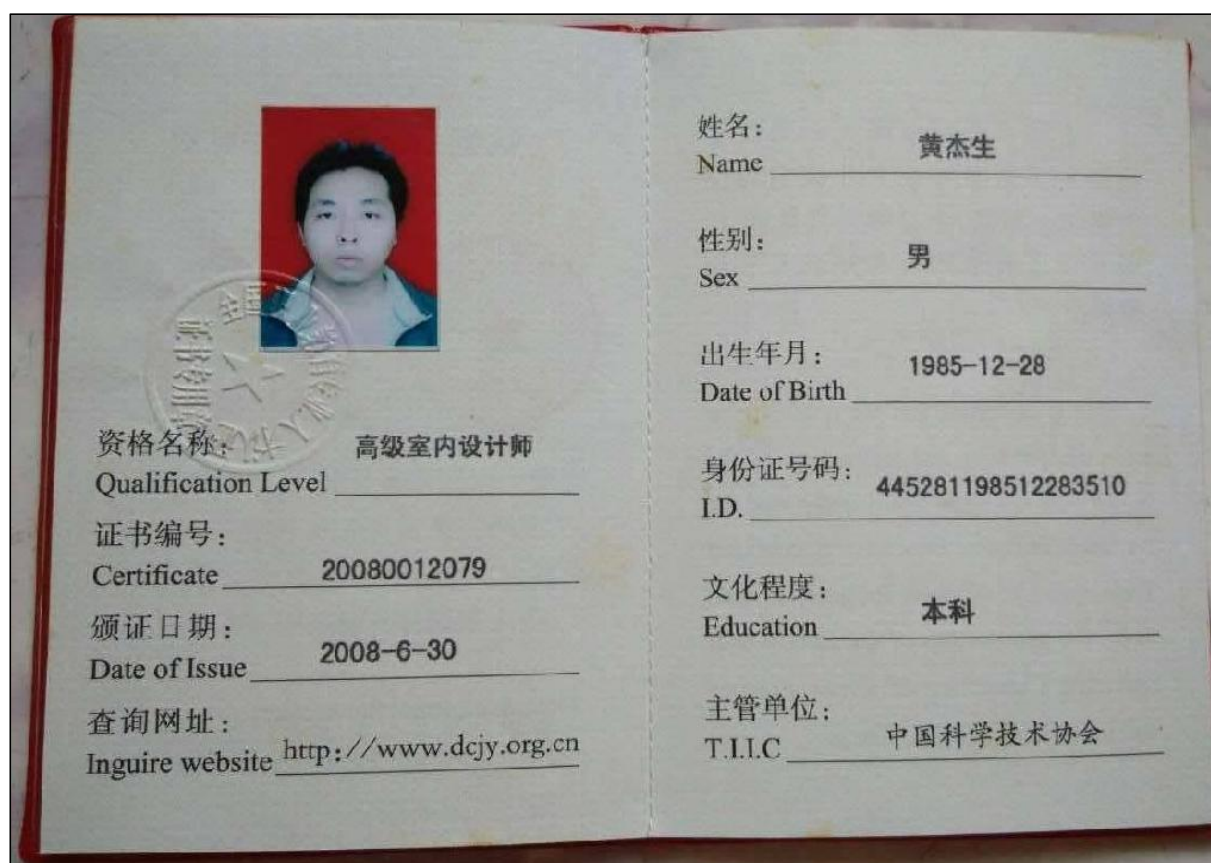 资格名称: 高级室内设计师
Qualification Level
证书编号:
Certificate 20080012079
颁证日期:
Date of Issue 2008-6-30
查询网址:
Inguire website http://www.dcjy.org.cn
姓名:
Name 黄杰生
性别:
Sex 男
出生年月:
Date of Birth 1985-12-28
身份证号码:
I.D. 445281198512283510
文化程度:
Education 本科
主管单位:
T.I.I.C 中国科学技术协会